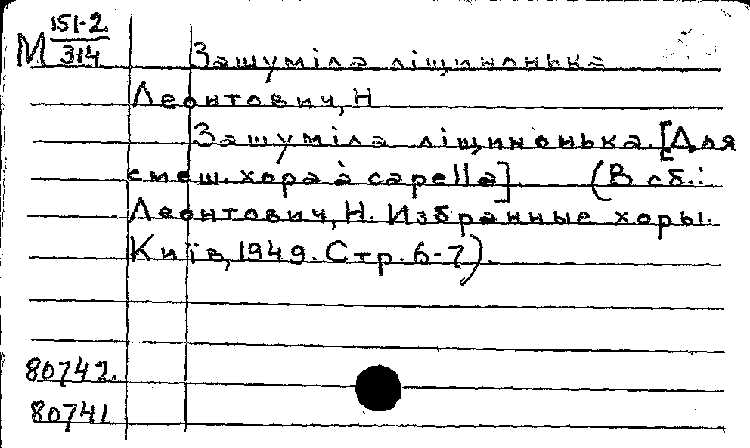 М 151-2
314
Зашуміла ліщинонька
Леонтович, Н
Зашуміла ліщинонька. [Для
смеш. хора à capella] (В сб.:
Леонтович, Н. Избранные хоры.
Київ, 1949. Стр. 6-7).
80742.
80741